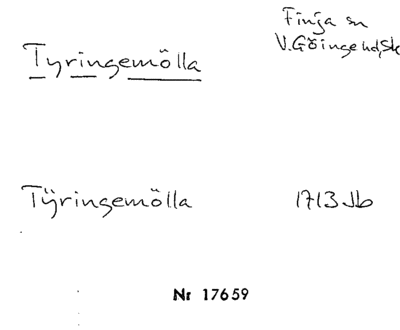 Tyringemölla
Finja sn
V.Göinge hd, Sk
Tÿringemölla
1713 Jb
Nr 17659